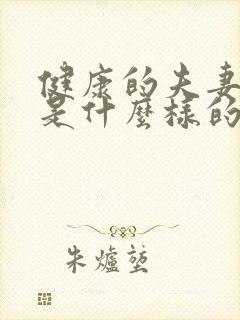 健康的夫妻
是什麼樣的
朱爐塹